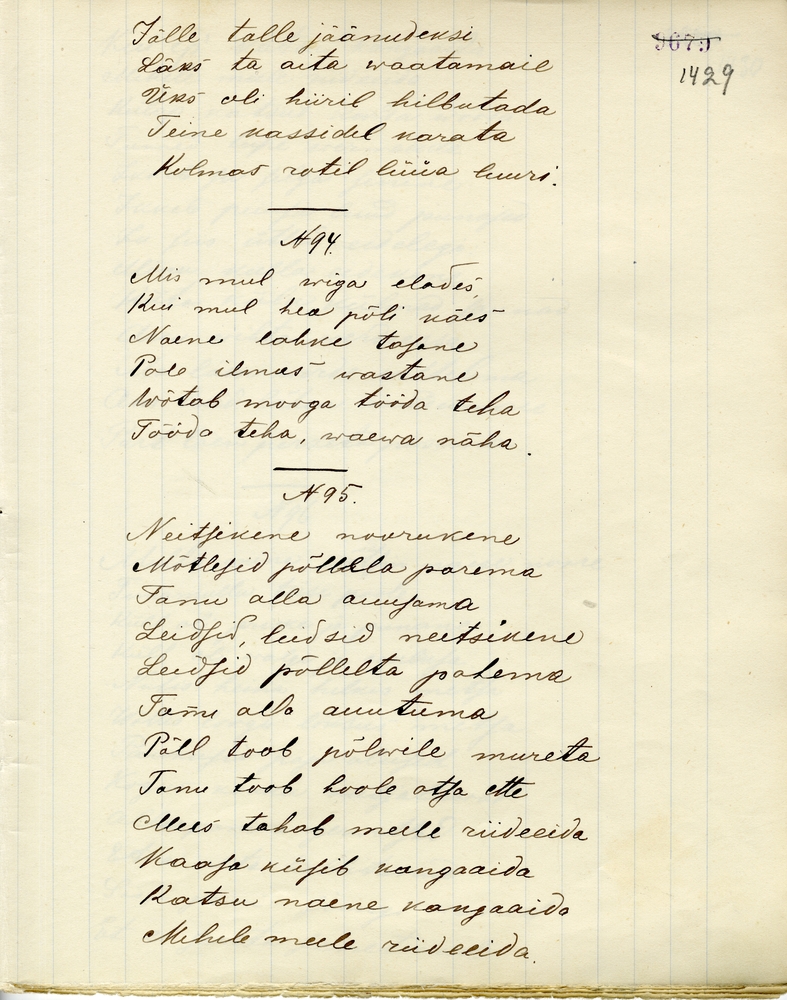 9679
1429
Jälle talle jäänudeksi
Läks ta aita waatamaie
Üks oli hiiril hilbutada
Teine kassidel karata
Kolmas rotil lüüa luuri.
N 94.
Mis mul wiga elades,
Kui mul hea põli käes
Naene lahke tasane
Pole ilmas wastane
Wõtab mooga tööda teha
Tööda teha, waewa näha.
N 95.
Neitsikene noorukene
Mõtlesid põllela parema
Tanu alla auusama
Leidsid, leidsid neitsikene
Leidsid põllelta pahema
Tanu alla auutuma
Põll toob põlwile mureta
Tanu toob hoole otsa ette
Mees tahab meele riideeida
Kaasa küsib kangaaida
Katsu naene kangaaida
Mehele meele riideeida.